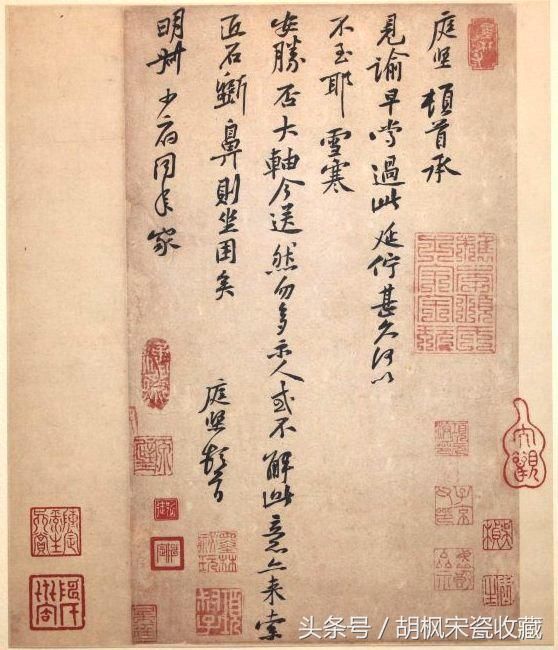 庭堅頓首承
見諭早嘗過此延佇甚久何以
不至耶雪寒
安勝否大軸今送然勿多示人或不解此意亦來索
匠石斲鼻則坐困矣
庭堅頓首
明叔少府同年家
头条号 / 胡枫宋瓷收藏